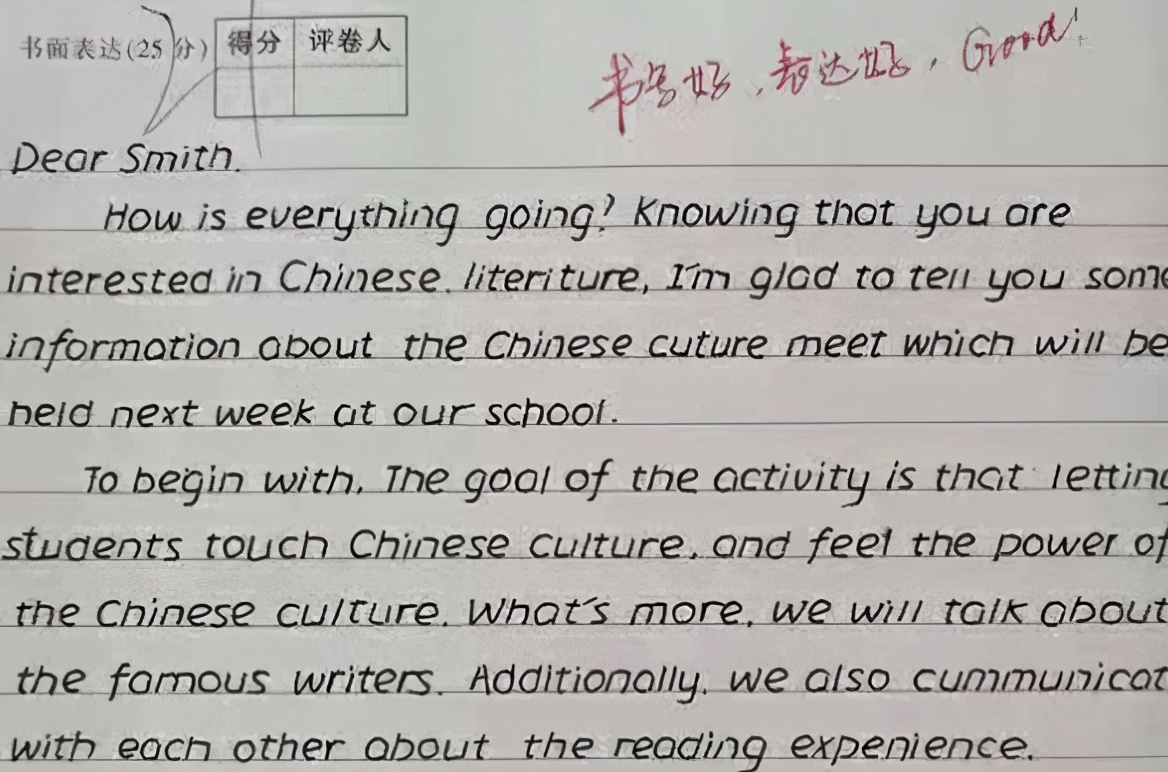 书面表达(25分) 得分 评卷人
书写好，表达好，Good!
Dear Smith.
How is everything going? Knowing that you are
interested in Chinese. literiture, I'm glad to tell you some
information about the Chinese cuture meet which will be
held next week at our school.
To begin with, The goal of the activity is that letting
students touch Chinese culture, and feel the power of
the Chinese culture. What's more, we will talk about
the famous writers. Additionally, we also cummunicat
with each other about the reading expenience.